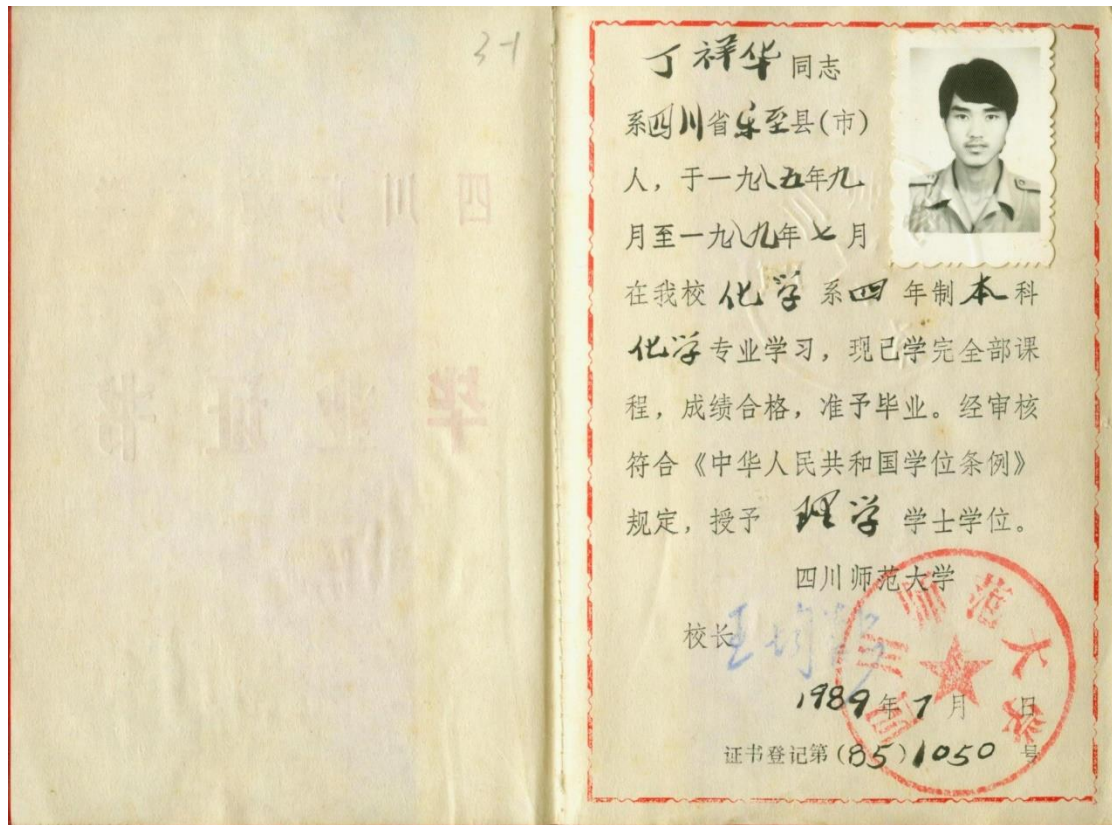 3-1
丁祥华 同志
系四川省乐至县(市)
人，于一九八五年九
月至一九八九年七月
在我校 化学 系 四 年制 本 科
化学专业学习，现已学完全部课
程，成绩合格，准予毕业。经审核
符合《中华人民共和国学位条例》
规定，授予 理学 学士学位。
四川师范大学
校长
1989年7月 日
证书登记第(85)1050 号
四川师范大学